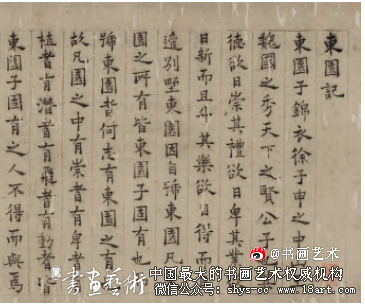 東園記
東園子錦衣徐子申之中
魏國之秀天下之賢公子
德欲日崇其禮欲日卑其業
日新而且斗其樂欲日得而
遠別墅東園因自號東園凡
園之所有皆東園子固有也
號東園者何志有東園之有
故凡園之中有崇者有卑者
植者有潛者有飛者有動者
東園子固有之人不得而與焉
@书画艺术
書畫藝術
中国最大的书画艺术权威机构
微信公众号: shys-cc www.18art.com